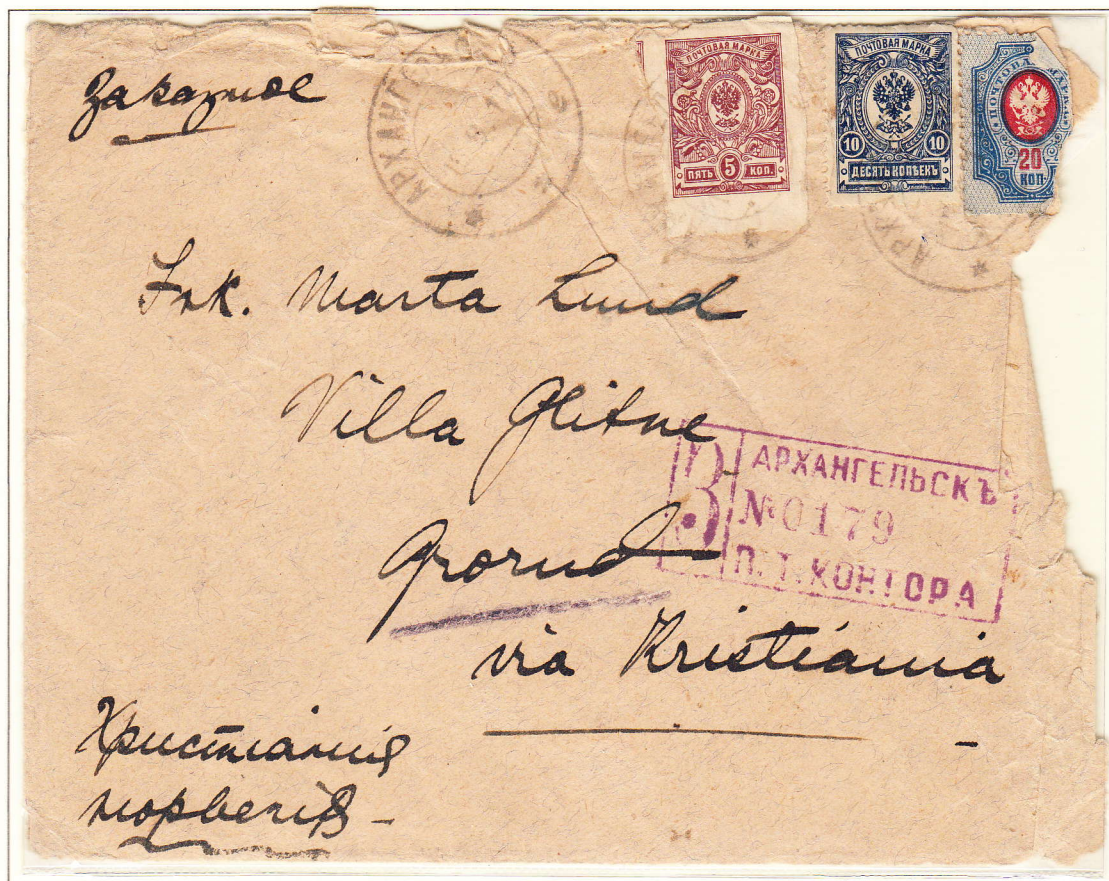 Заказное
АРХАНГЕЛЬСК
ПОЧТОВАЯ МАРКА
5
ПЯТЬ КОП.
ПОЧТОВАЯ МАРКА
10 10
ДЕСЯТЬ КОПѢЕКЪ
ПОЧТОВАЯ МАРК
20
КОП.
АРХ
Frk. Marta Lund
Villa Glitne
Grorud
via Kristiania
З. АРХАНГЕЛЬСКЪ
№ 0179
П.Т. КОНТОРА
Христіанія
Норвегія -